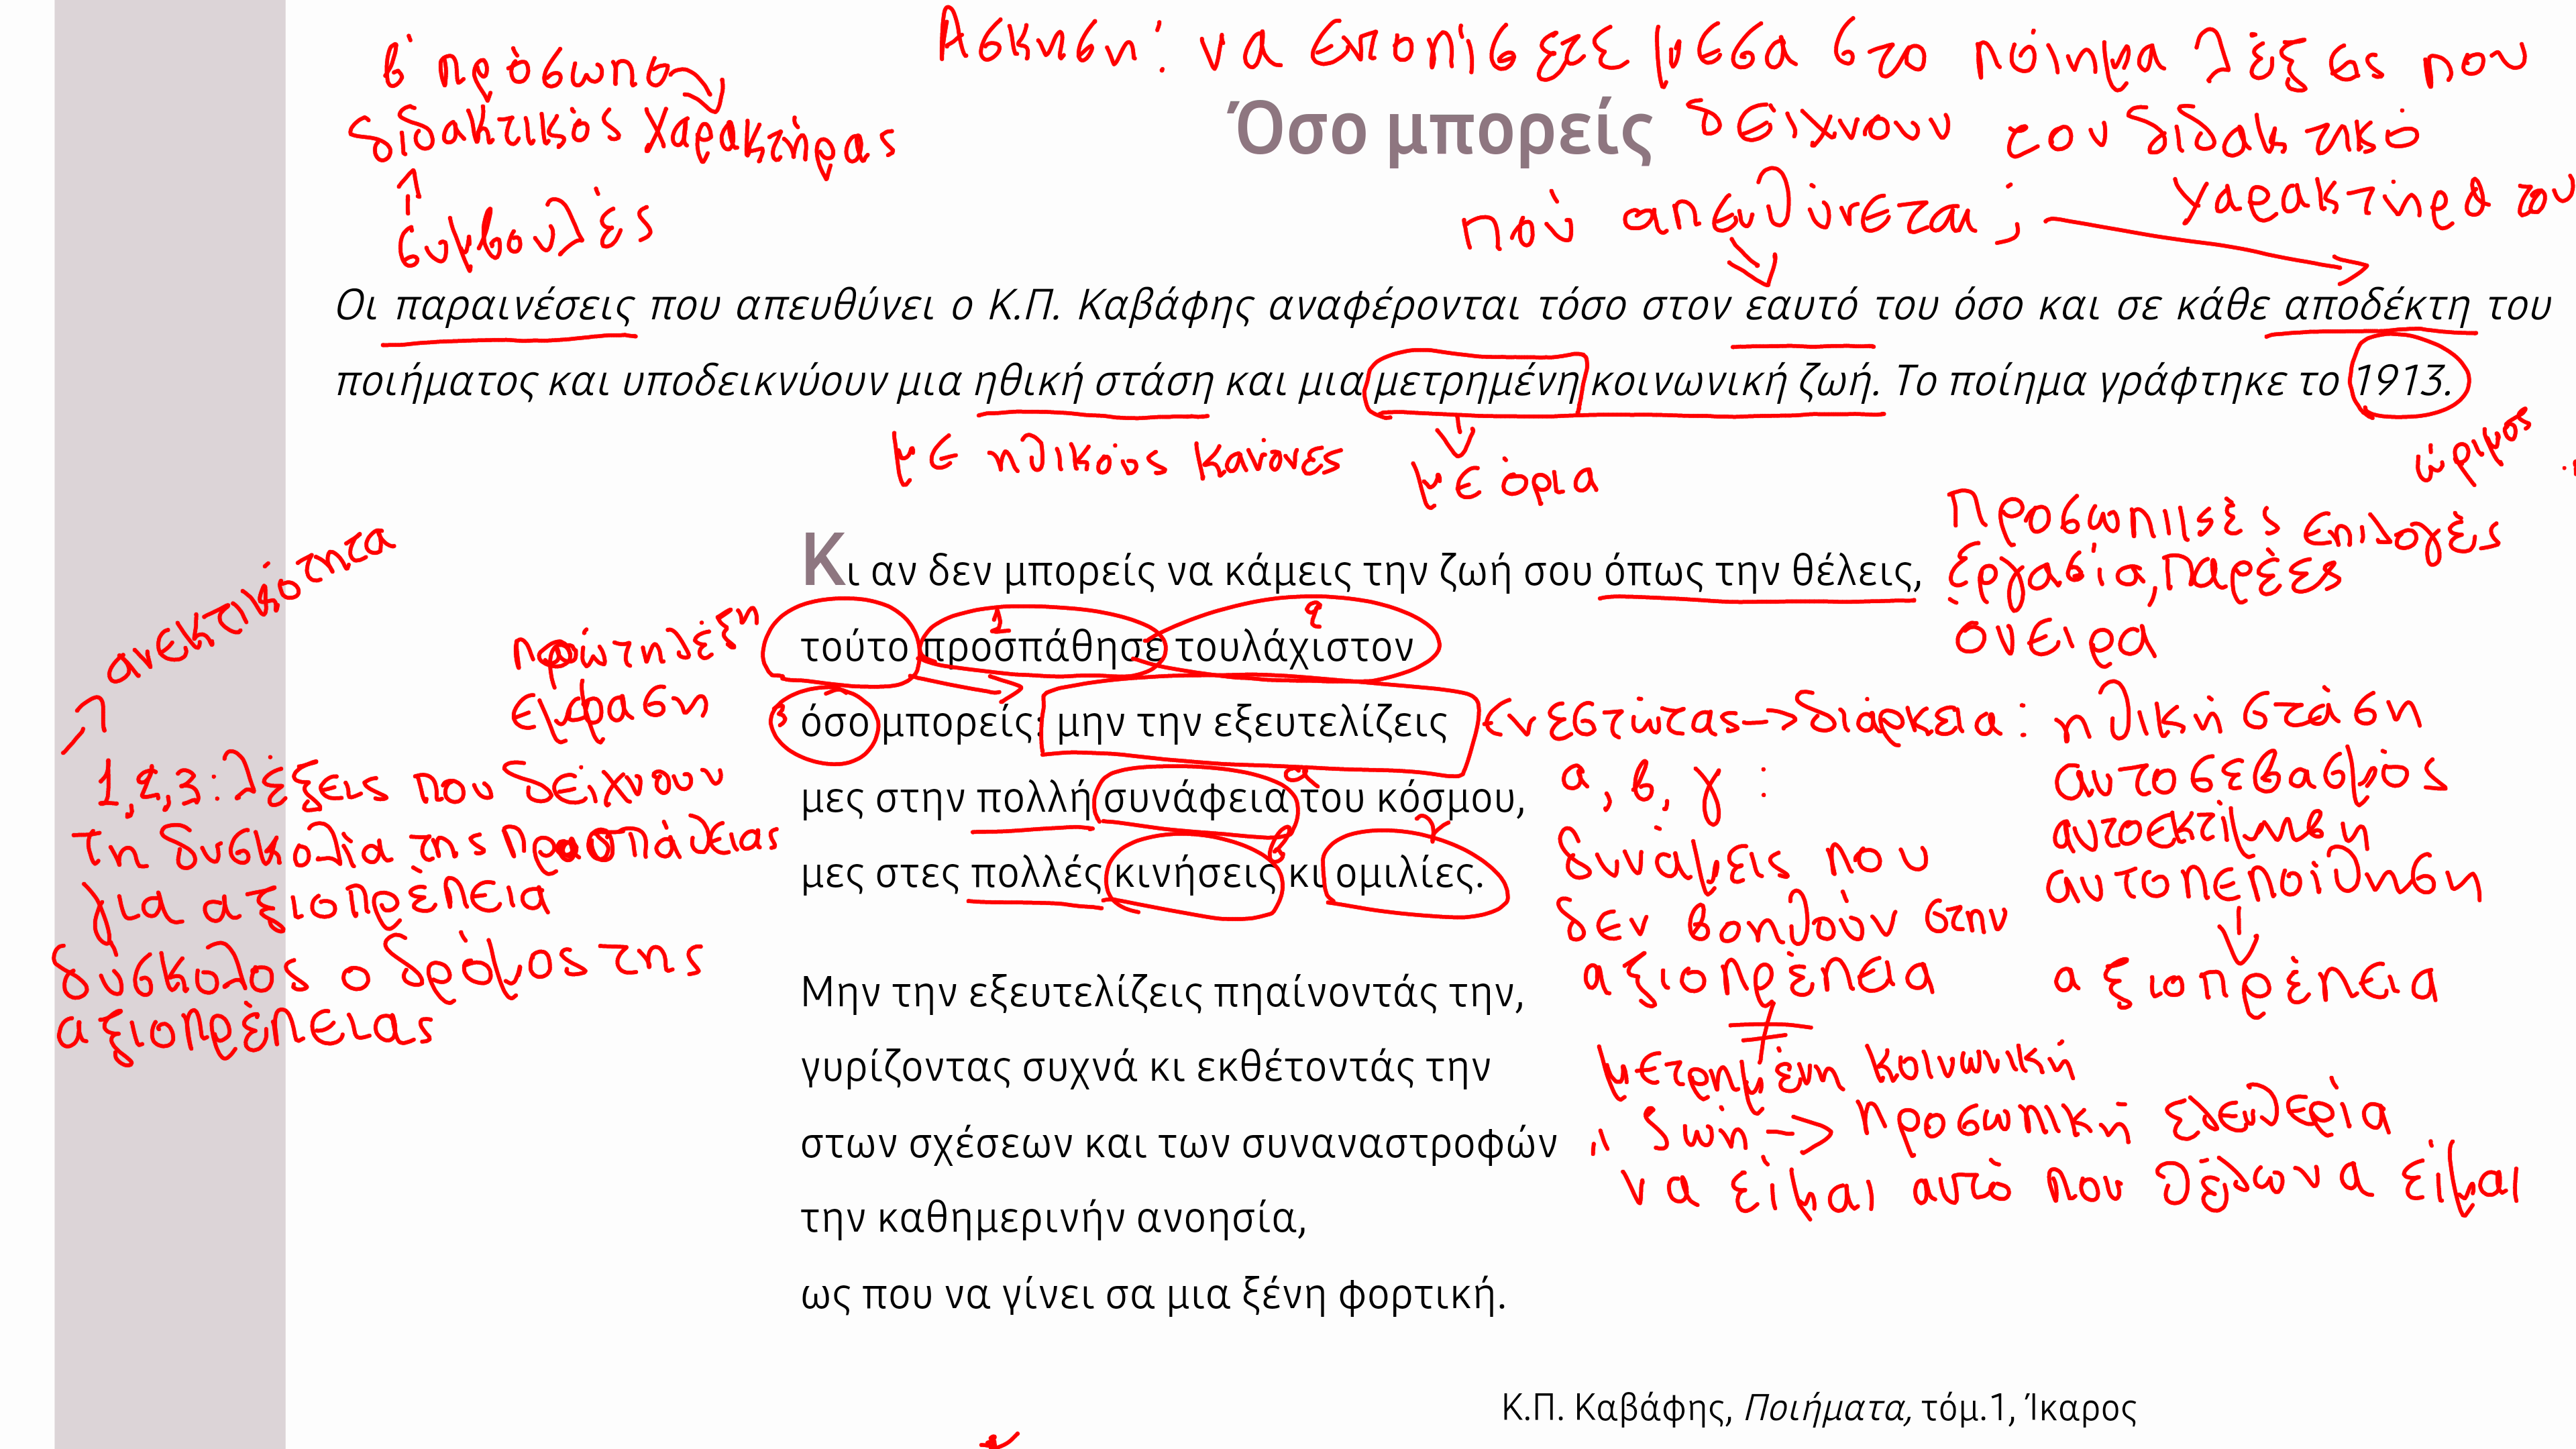 Άσκηση: να εντοπίσετε μέσα στο ποίημα λέξεις που
δείχνουν τον διδακτικό
χαρακτήρα του
β' πρόσωπο
διδακτικός χαρακτήρας
συμβουλές
Όσο μπορείς
πού απευθύνεται;
Οι παραινέσεις που απευθύνει ο Κ.Π. Καβάφης αναφέρονται τόσο στον εαυτό του όσο και σε κάθε αποδέκτη του
ποιήματος και υποδεικνύουν μια ηθική στάση και μια μετρημένη κοινωνική ζωή. Το ποίημα γράφτηκε το 1913.
ώριμος
με ηθικούς κανόνες
με όρια
Κι αν δεν μπορείς να κάμεις την ζωή σου όπως την θέλεις,
προσωπικές επιλογές
εργασία, παρέες
όνειρα
τούτο προσπάθησε τουλάχιστον
1 2
πρώτη λέξη
έμφαση
3 όσο μπορείς: μην την εξευτελίζεις
μες στην πολλή συνάφεια του κόσμου,
α
μες στες πολλές κινήσεις κι ομιλίες.
β γ
ανεκτικότητα
1,2,3: λέξεις που δείχνουν
τη δυσκολία της προσπάθειας
για αξιοπρέπεια
δύσκολος ο δρόμος της
αξιοπρέπειας
ενεστώτας -> διάρκεια: ηθική στάση
αυτοσεβασμός
αυτοεκτίμηση
αυτοπεποίθηση
αξιοπρέπεια
α, β, γ:
δυνάμεις που
δεν βοηθούν στην
αξιοπρέπεια
≠
μετρημένη κοινωνική
ζωή -> προσωπική ελευθερία
να είμαι αυτό που θέλω να είμαι
Μην την εξευτελίζεις πηαίνοντάς την,
γυρίζοντας συχνά κι εκθέτοντάς την
στων σχέσεων και των συναναστροφών
την καθημερινήν ανοησία,
ως που να γίνει σα μια ξένη φορτική.
Κ.Π. Καβάφης, Ποιήματα, τόμ.1, Ίκαρος